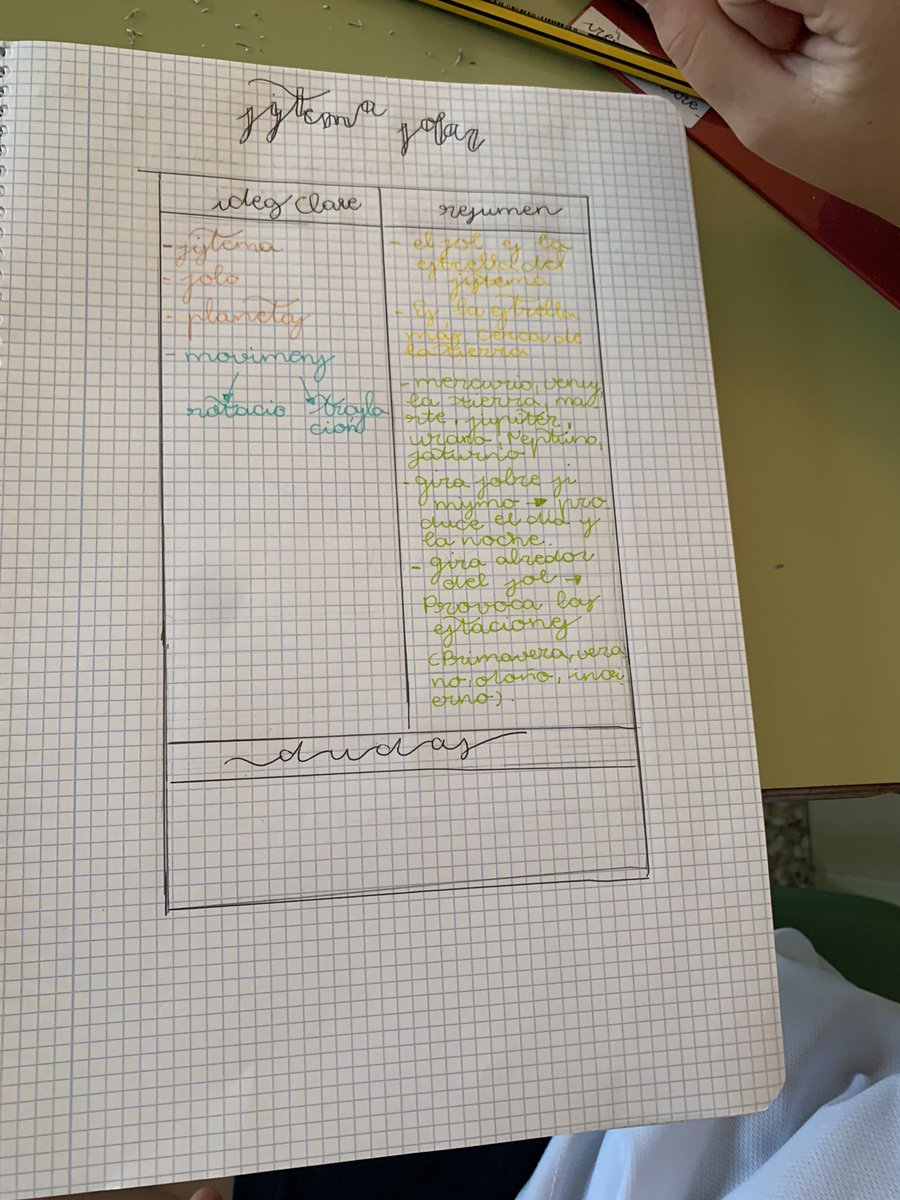 sistema solar
ideas clave
resumen
- sistema
- solo
- planetas
- movimens
rotacio trasla
ción
- el sol es la
estrella del
sistema
- Es la estrella
más cerca de
la tierra
- mercurio, venus,
la tierra, ma
rte, jupiter,
urano, Neptuno,
saturno
- gira sobre si
mismo → pro
duce el día y
la noche.
- gira alredor
del sol →
Provoca las
estaciones
(Primavera, vera
no, otoño, invi
erno).
dudas